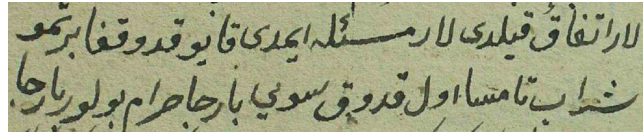 لار اتفاق قیلدی لار مسئله ایمدی قایو قدوقغا بر تمو
شراب تامسا اول قدوق سوبي بارجا حرام بولور بارجا